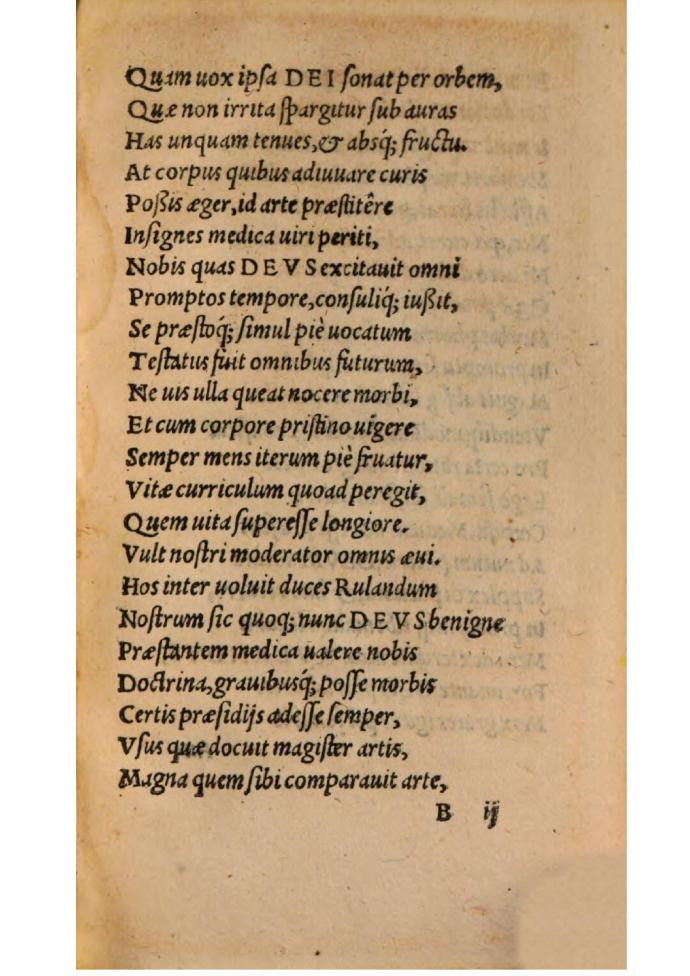 Quam uox ipſa DEI ſonat per orbem,
Quæ non irrita ſpargitur ſub auras
Has unquam tenues, & absq́; fructu.
At corpus quibus adiuuare curis
Poßis æger, id arte præſtitêre
Inſignes medica uiri periti,
Nobis quas DEVS excitauit omni
Promptos tempore, conſuliq́; iußit,
Se præſtoq́; ſimul piè uocatum
Teſtatus fuit omnibus futurum,
Ne uis ulla queat nocere morbi,
Et cum corpore priſtino uigere
Semper mens iterum piè fruatur,
Vitæ curriculum quoad peregit,
Quem uita ſupereſſe longiore.
Vult noſtri moderator omnis æui.
Hos inter uoluit duces Rulandum
Noſtrum ſic quoq; nunc DEVS benigne
Præſtantem medica ualere nobis
Doctrina, grauibusq́; poſſe morbis
Certis præſidijs adeſſe ſemper,
Vſus quæ docuit magiſter artis,
Magna quem ſibi comparauit arte,
B ij